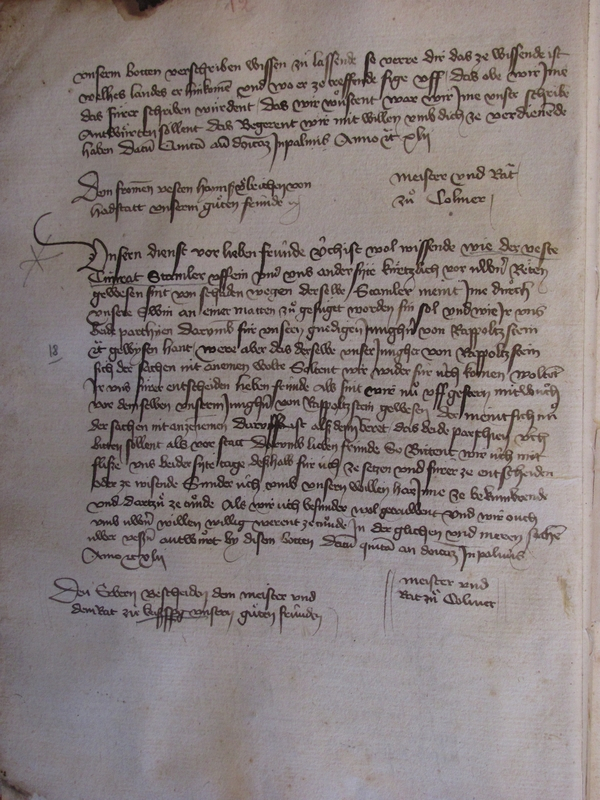 unserm botten verschriben wissen zu lassende so verre dir das ze wissende ist
welhes landes er hinkomen und wo er ze treffende sige uff das obe wir Ime
das furer schriben wurdent das wir wustent war wir Ime unser schribe
Antwurten sollent das Begerent wir mit willen umb dich ze verdienende
haben Datum quinta an dominica In palmis Anno etc xlii
Dem fromen vesten von
hadstatt unserm guten frunde
meister und Rat
zu Colmer
Unsern dienst vor lieben frunde Uch ist wol wissende wie der veste
Cunrat Stamler uff ein und uns ander site kurtzlich vor uwern Reten
gewesen sint von schaden wegen derselbe Stamler meint Ime durch
unsere Swin an einer matten zu gefuget worden sin sol und wie Ir uns
bede parthien darumb fur unsern gnedigen Junghern von Rappoltzstein
etc gewysen hant were aber das derselbe unser Jungher von Rappoltzstein
sich der sachen nit anemen wolte Soltent wir wider fur uch komen woltent
Ir uns furer entscheiden lieben frunde Als sint wir nu uff gestern mitwuch
vor demselben unserm Junghern von Rappoltzstein gewesen der meint sich nit
der sachen mit anzenemen Daruff ist als dem beret das bede parthien uch
bitten sollent als vor stat Darumb lieben frunde So Bittent wir uch mit
flisse uns beider site tage deshalb fur uch ze setzen und furer ze entscheiden
oder ze wisende Sunder uch umb unsern willen har Inne ze bekumbernde
und dartzu ze tunde Als wir uch besunder wol getruwent und wir ouch
umb uwern willen willig werent ze tunde In der glichen und meren sachen
uwer antwurt by disem botten Datum quinta an dominica In palmis
Anno etc xlii
Den Erbern Bescheiden dem meister und
dem Rat zu unsern guten frunden
meister und
Rat zu Colmer
18